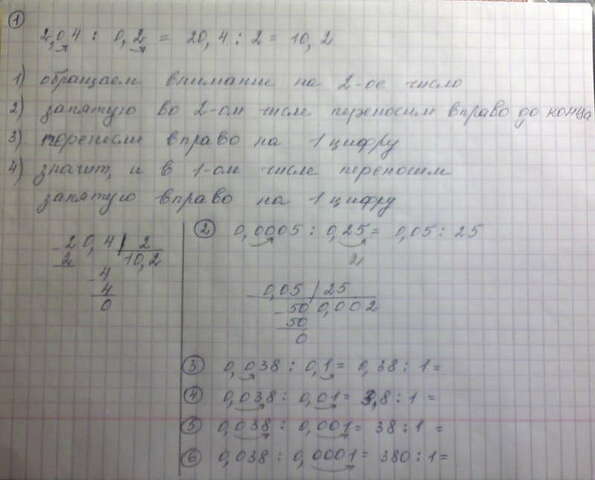 ①
2,04 : 0,2 = 20,4 : 2 = 10,2
1) обращаем внимание на 2-ое число
2) запятую во 2-ом числе переносим вправо до конца
3) перенесли вправо на 1 цифру
4) значит, и в 1-ом числе переносим
запятую вправо на 1 цифру
20,4 | 2
2 10,2
4
4
0
② 0,0005 : 0,25 = 0,05 : 25
0,05 | 25
50 0,002
50
0
③ 0,038 : 0,1 = 0,38 : 1 =
④ 0,038 : 0,01 = 3,8 : 1 =
⑤ 0,038 : 0,001 = 38 : 1 =
⑥ 0,038 : 0,0001 = 380 : 1 =